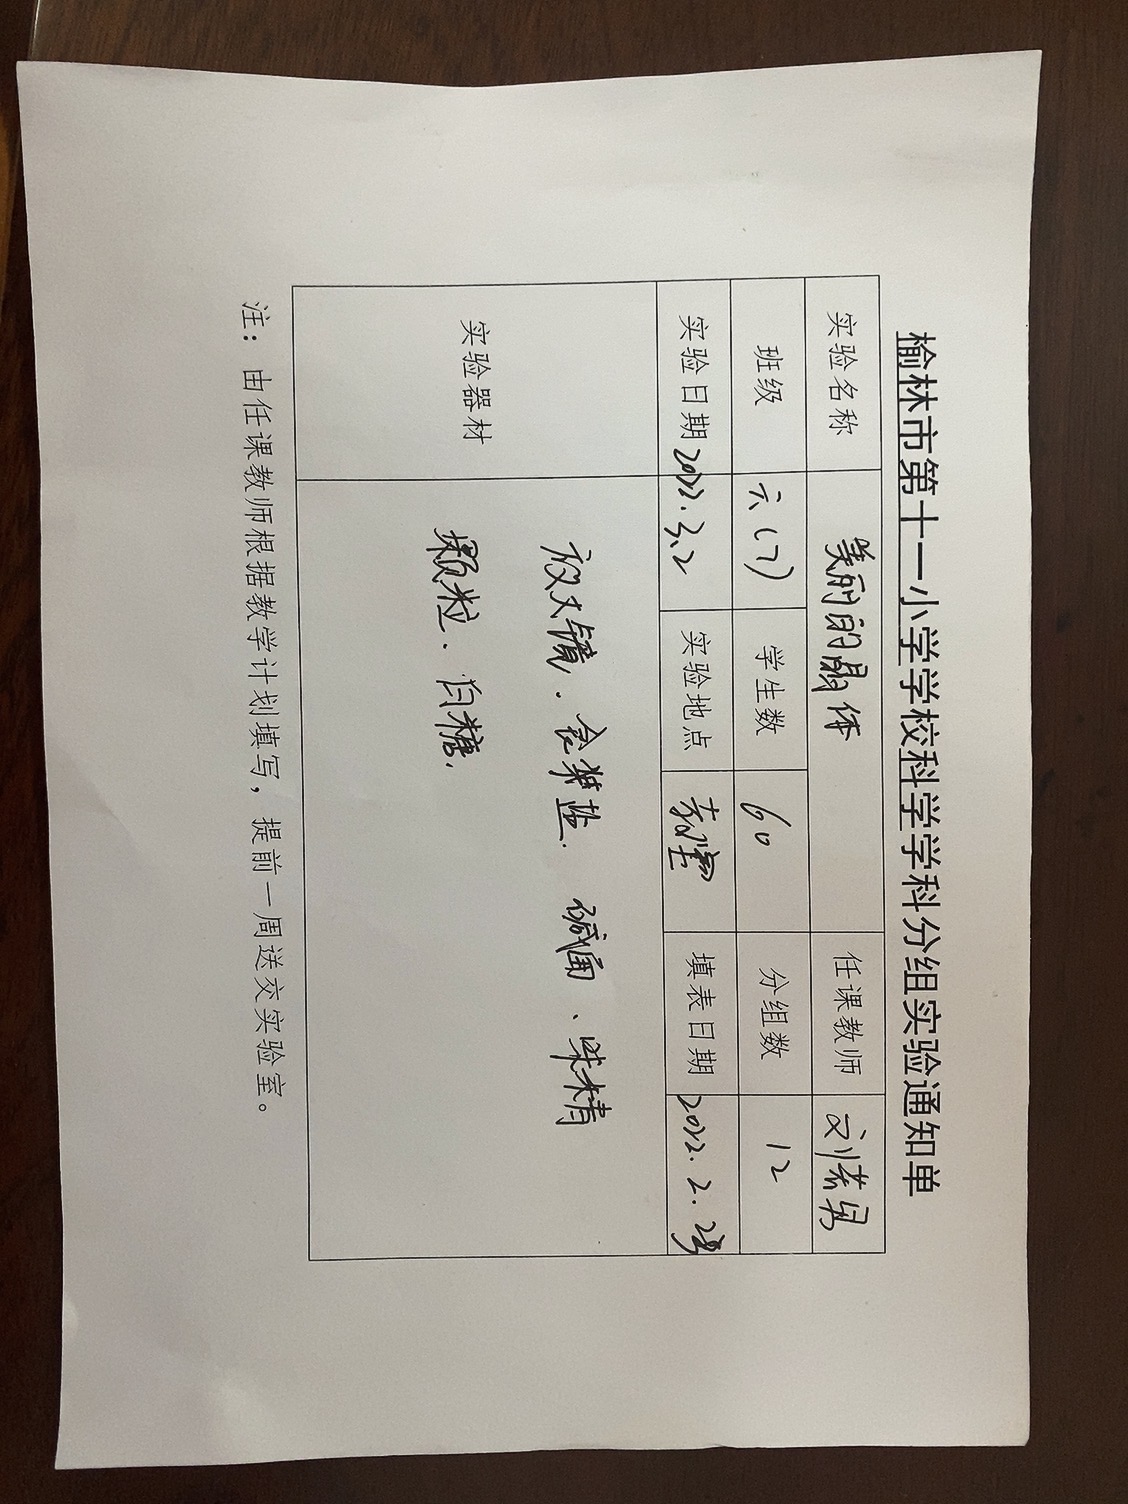 榆林市第十一小学学校科学学科分组实验通知单
实验名称 美丽的晶体 任课教师
班级 六(7) 学生数 60 分组数 12
实验日期 2022.3.2 实验地点 教室 填表日期 2022.2.
实验器材 放大镜、食盐、碱面、味精
颗粒、白糖.
注：由任课教师根据教学计划填写，提前一周送交实验室。